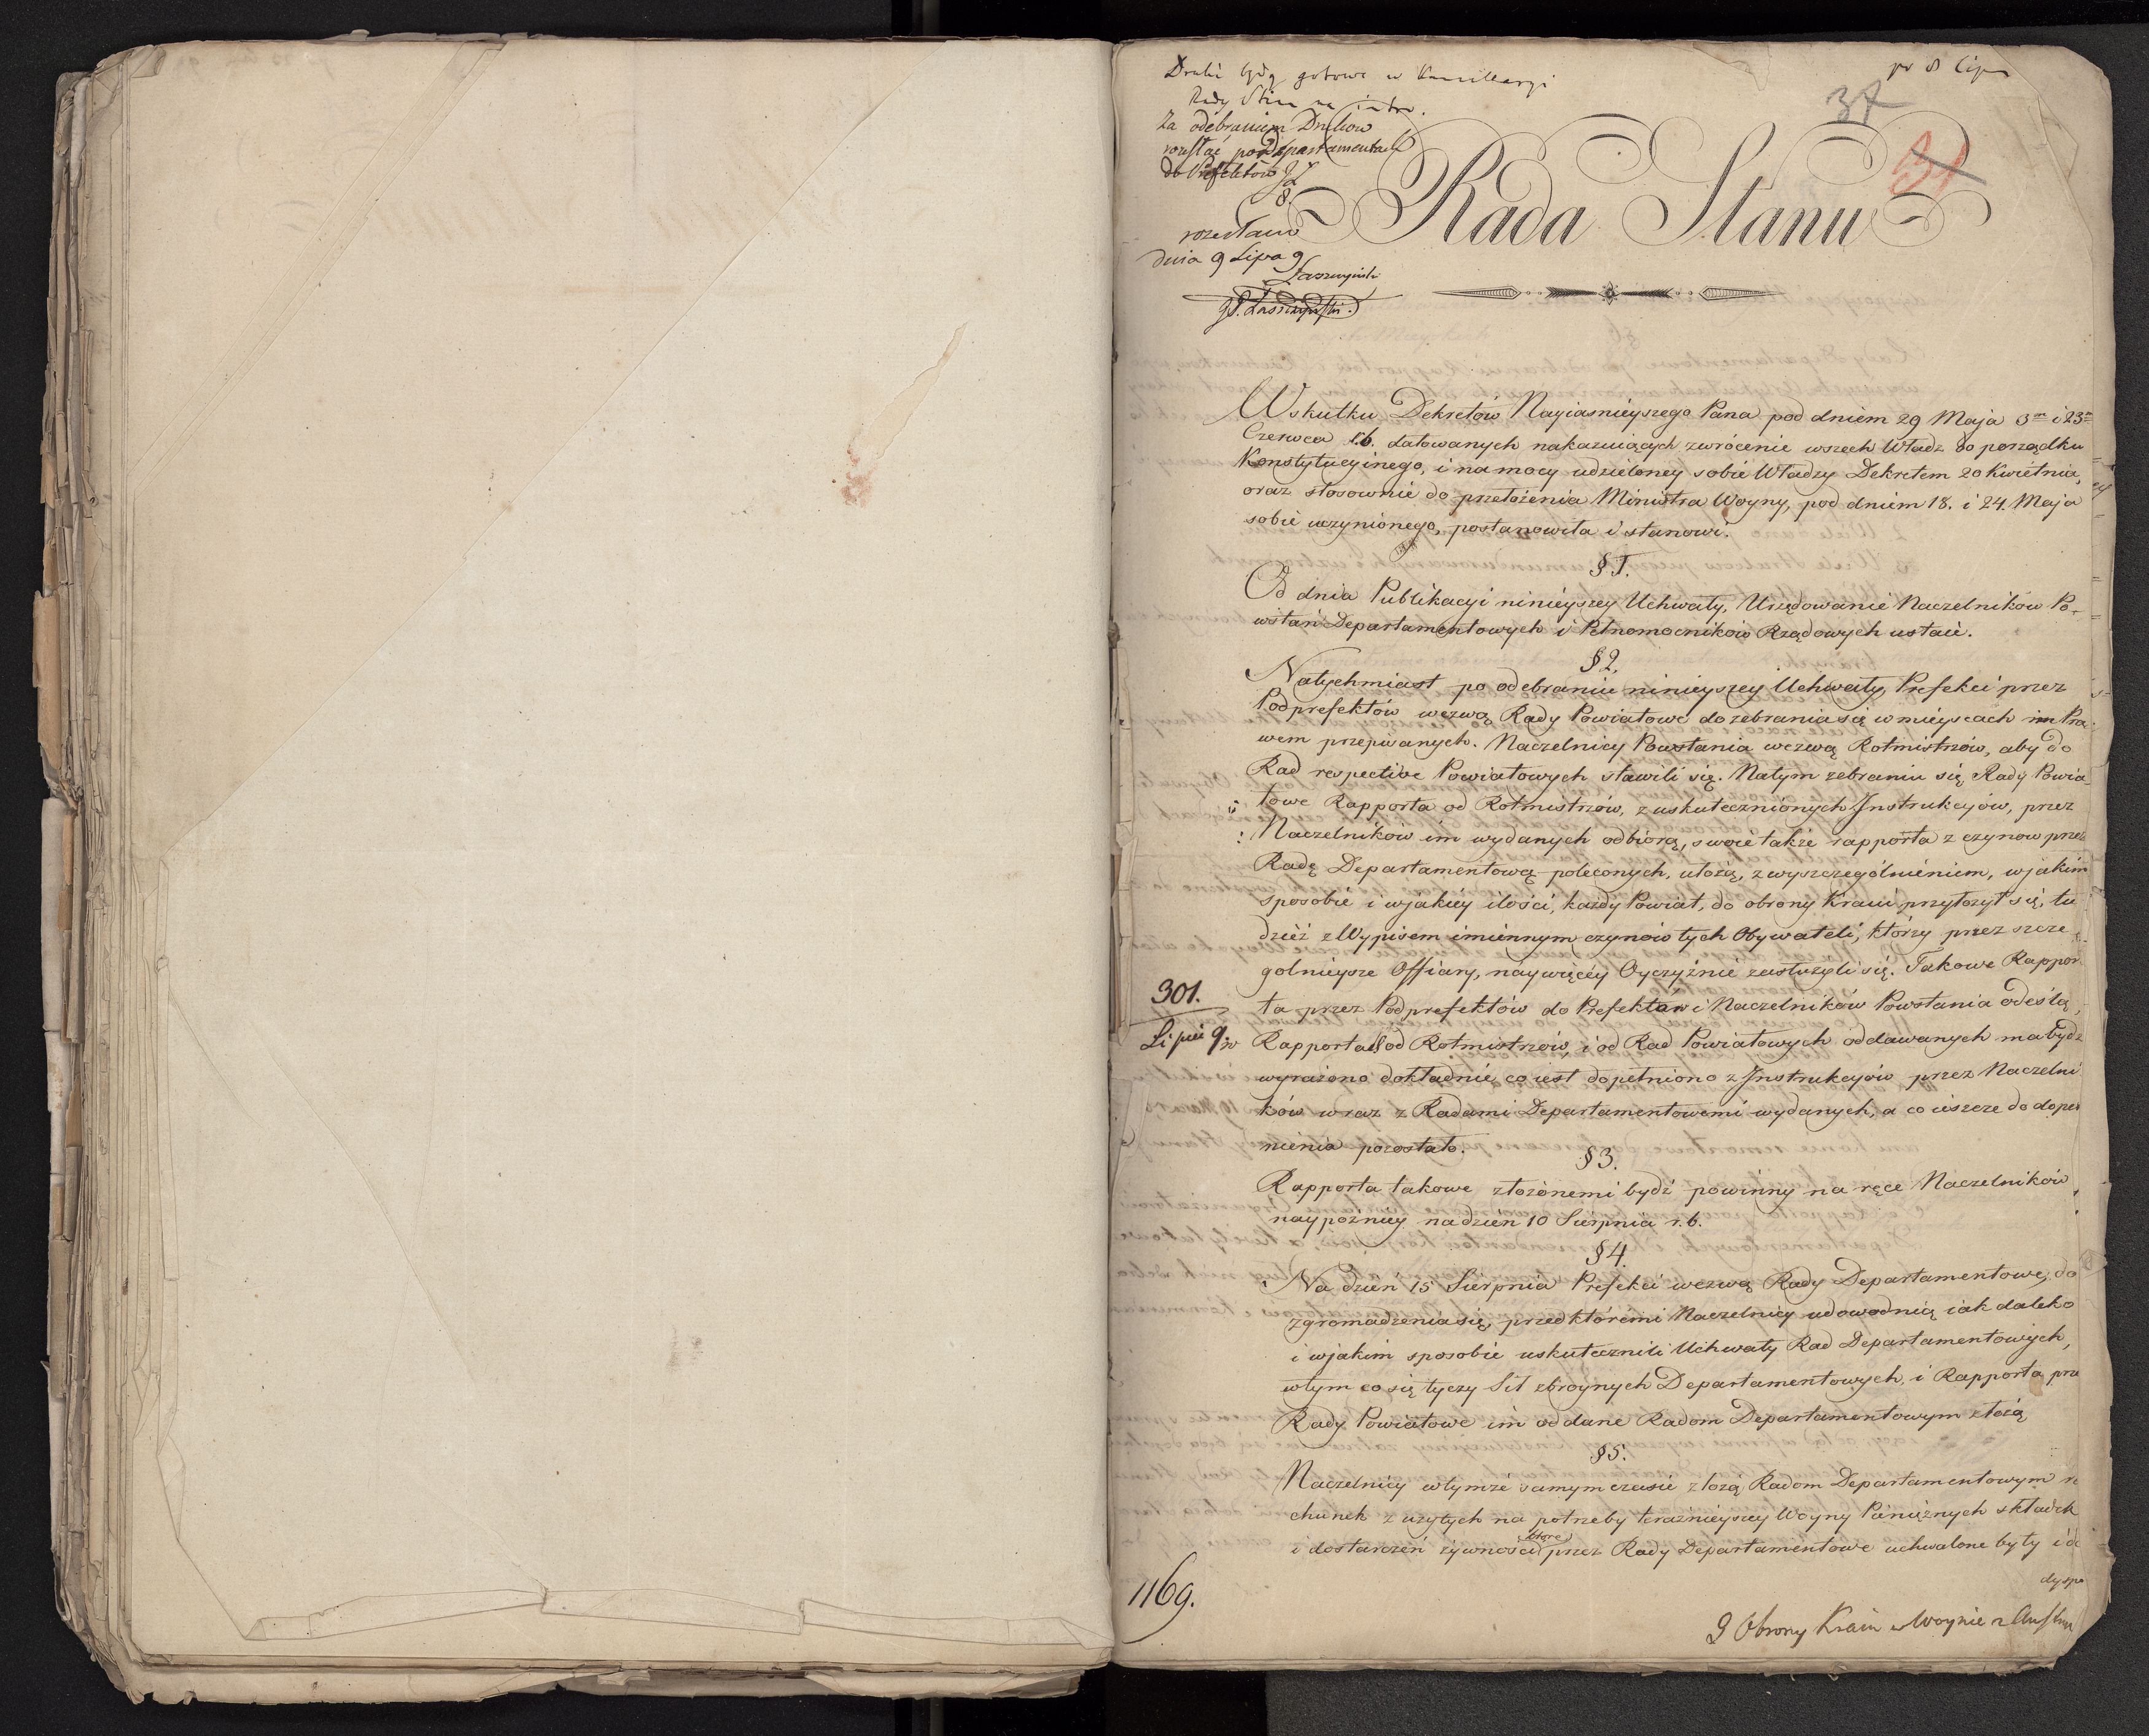 Druki będą gotowe w Kancellaryi
Rady Stanu na jutro.
Za odebraniem Druków
rozesłać po Departamentach
do Prefektów
8.
rozesłano
dnia 9 Lipca 9
Laszczyński
Laszczyński.
pr 8 Lipca
37
31
Rada Stanu
Wskutku Dekretów Nayiasnieyszego Pana pod dniem 29 Maja 3m i 23m
Czerwca r.b. datowanych nakazuiących zwrócenie wszech Władz do porządku
Konstytucyinego, i na mocy udzieloney sobie Władzy Dekretem 20 Kwietnia,
oraz stosownie do przełożenia Ministra Woyny, pod dniem 18. i 24. Maja
sobie uczynionego, postanowiła i stanowi.
§ 1.
Od dnia Publikacyi ninieyszey Uchwały, Urzędowanie Naczelników Po-
wstań Departamentowych i Pełnomocników Rządowych ustaie.
§ 2.
Natychmiast po odebraniu ninieyszey Uchwały, Prefekci przez
Podprefektów wezwą Rady Powiatowe do zebrania się w mieyscach im Pra-
wem przepisanych. Naczelnicy Powstania wezwą Rotmistrzów, aby do
Rad respective Powiatowych stawili się. Na tym zebraniu się, Rady Powia-
towe Rapporta od Rotmistrzów, z uskutecznionych Instrukcyów, przez
Naczelników im wydanych odbiorą, swoie także rapporta z czynow przez
Radę Departamentową poleconych, ułożą, z wyszczególnieniem, w jakim
sposobie i w jakiey ilości, każdy Powiat, do obrony Kraiu przyłożył się, tu
dzież z Wypisem imiennym czynów tych Obywateli, którzy przez szcze
gólnieysze Offiary, naywięcey Oyczyźnie zasłużyli się. Takowe Rappor
ta przez Podprefektów do Prefektów i Naczelników Powstania odeślą,
w Rapportach od Rotmistrzów, i od Rad Powiatowych oddawanych ma bydź
wyrażono dokładnie, co iest dopełniono z Instrukcyów przez Naczelni
ków wraz z Radami Departamentowemi wydanych, a co ieszcze do dopeł
nienia pozostało.
§ 3.
Rapporta takowe złożonemi bydź powinny na ręce Naczelników
naypoźniey na dzień 10 Sierpnia r.b.
§ 4.
Na dzień 15 Sierpnia Prefekci wezwą Rady Departamentowe, do
zgromadzenia się, przed któremi Naczelnicy udowodnią iak daleko
i w jakim sposobie uskutecznili Uchwały Rad Departamentowych,
w tym co się tyczy Sił zbroynych Departamentowych, i Rapporta prze
Rady Powiatowe im oddane Radom Departamentowym złożą
§ 5.
Naczelnicy w tymże samym czasie złożą Radom Departamentowym ra
chunek z użytych na potrzeby teraźnieyszey Woyny Pieniężnych składek
i dostarczeń żywności które przez Rady Departamentowe uchwalone były i do
dyspo
301.
Lipiec 9.
1169.
Obrony Kraiu w Woynie z Austryą